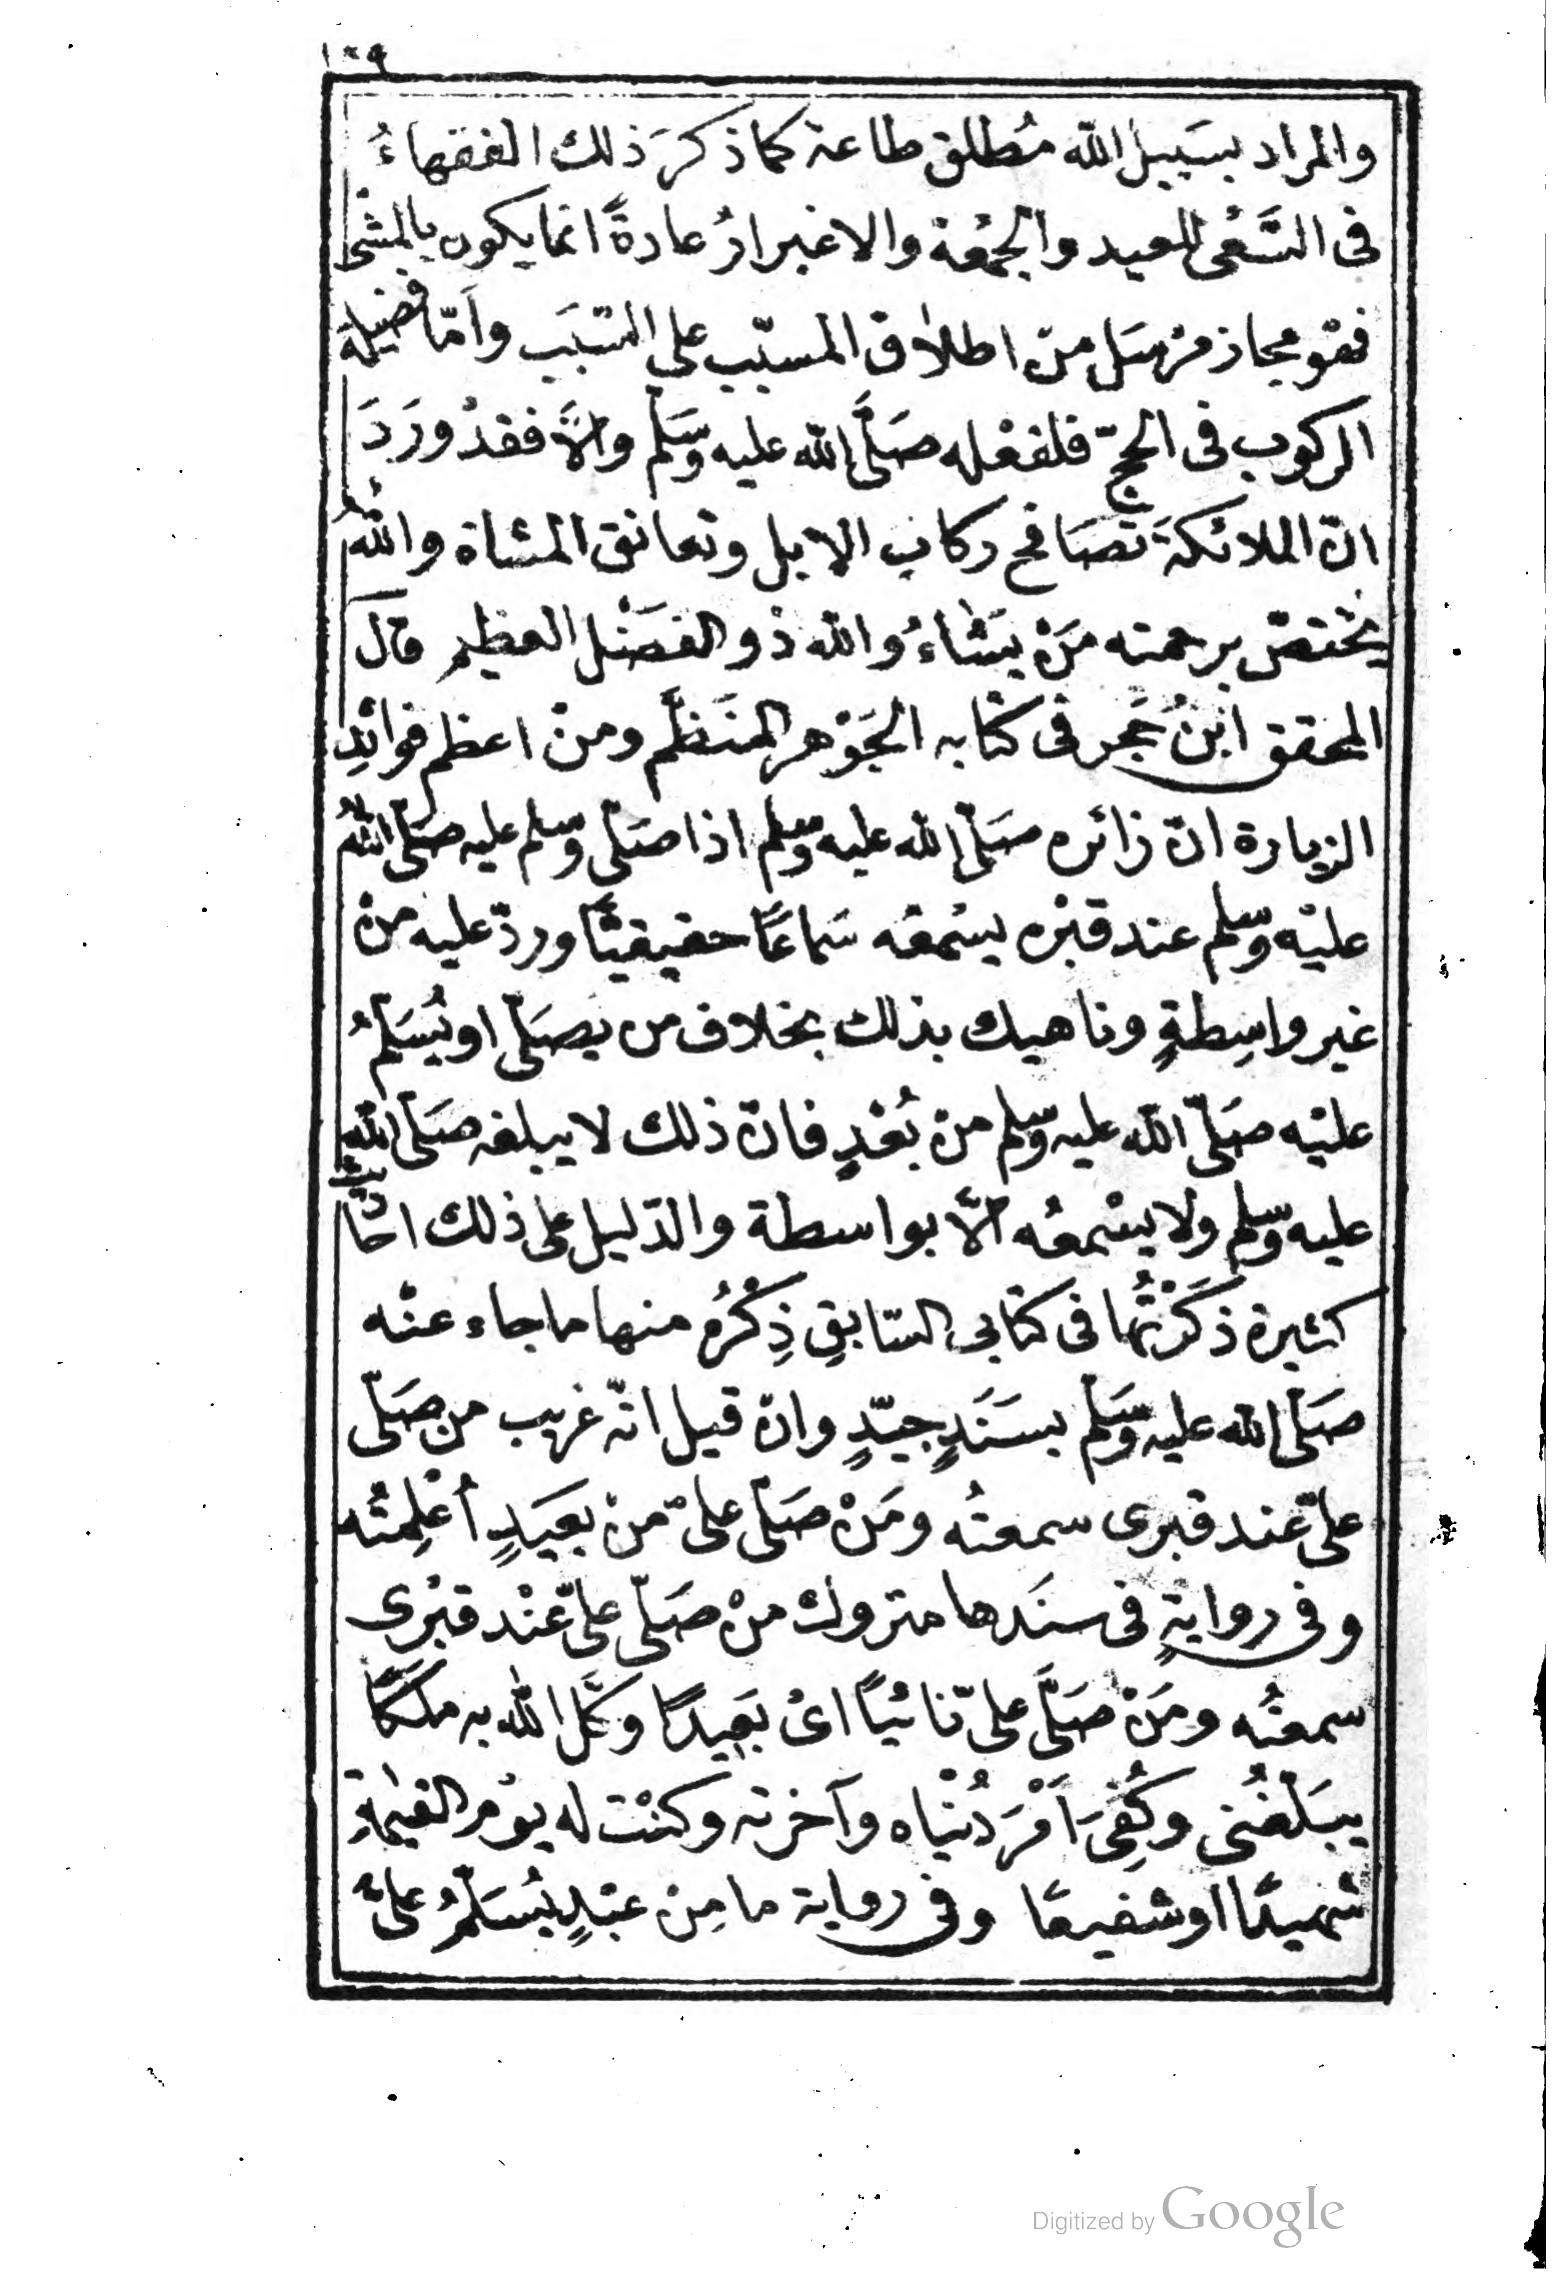 ١٠٩
والمراد بسَبيل الله مُطلق طاعة كما ذكرَ ذلك الفقهاءُ
فى السَّعْى للعيد والجمْعة والاغبرارُ عادةً انما يكون بالمشْى
فهْو مجاز مرْسَل منْ اطلاق المسبّب على السّبَب وأمّا فضيلة
الركوب فى الحجّ فلفعْله صَلَّى الله عليه وسَلم والاَّ فقدْ ورَدَ
انّ الملائكةَ تصَافح ركاب الابل وتعانق المشاة واللهُ
يخْتصّ برحمته مَنْ يَشاءُ والله ذو الفضْل العظيم قال
المحقق ابْنُ حَجر فى كتابه الجَوْهر المنَظَّم ومنْ اعظم فوائدِ
الزيارة انّ زائره صَلّى الله عليه وسلم اذا صَلّى وسلم عليه صَلّى اللهُ
عليْه وسلم عند قبْره يسْمعُه سَماعًا حقيقيًّا وردّ عليه منْ
غير واسِطةٍ وناهيك بذلك بخلاف من يصَلّى او يُسَلمُ
عليْه صَلّى الله عليه وسلم منْ بُعْدٍ فانّ ذلك لا يبلغه صَلّى الله
عليه وسلم ولا يسْمعُه الاّ بواسطة والدّليل على ذلك احاديث
كثيرة ذكَرْتُها فى كتابى السّابقِ ذِكْرُه منها ما جاء عنْه
صَلّى الله عليه وسَلم بسَنَدٍ جيّدٍ وانْ قيل انّه غريب من صَلّى
علىّ عند قبرى سمعتُه ومَنْ صَلّى علىّ منْ بعَيدٍ أُعْلِمتُه
وفى روايةٍ فى سنَدها متروك منْ صَلّى علىّ عنْد قبْرى
سمعتُه ومَنْ صَلَّى علىّ نائيًا اىْ بَعيدًا وكَّل الله به ملَكًا
يبَلّغُنى وكُفِىَ اَمْرَ دُنْياه وآخرته وكنْت له يوْم القيٰمةِ
شهيدًا او شفيعًا وفى رواية ما مِنْ عبْدٍ يُسَلّمُ علىّ
Digitized by Google